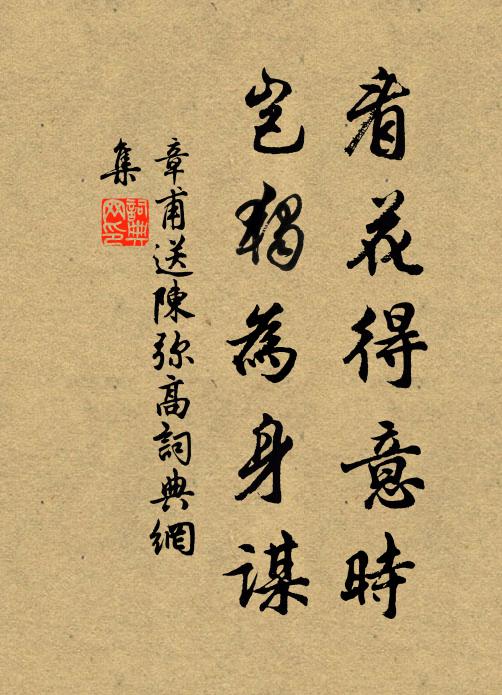 看花得意時
豈獨為身謀
章甫送陳弥高詞典網
集
詞典網印